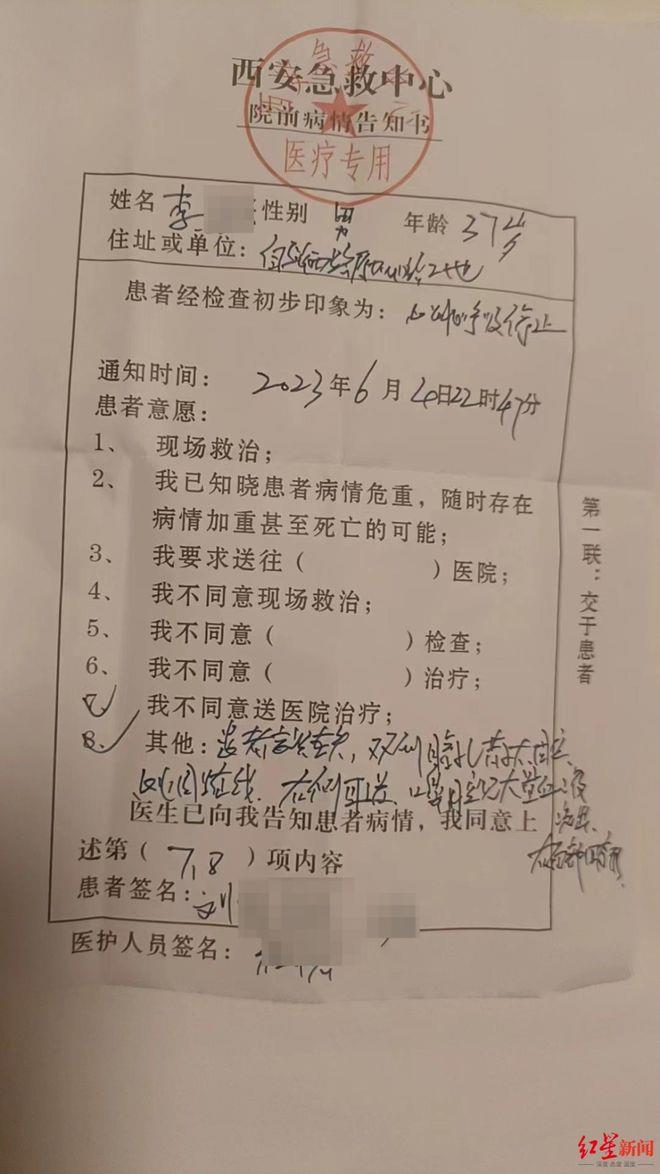 西安急救中心
院前病情告知书
医疗专用
姓名 李 性别 男 年龄 37岁
住址或单位：
患者经检查初步印象为：心跳呼吸停止
通知时间： 2023年6月4日22时47分
患者意愿：
1、 现场救治；
2、 我已知晓患者病情危重，随时存在
病情加重甚至死亡的可能；
3、 我要求送往（ ）医院；
4、 我不同意现场救治；
5、 我不同意（ ）检查；
6、 我不同意（ ）治疗；
7、 我不同意送医院治疗；
8、 其他：患者意识丧失，双侧瞳孔散大固定
医生已向我告知患者病情，我同意上
述第（ 7,8 ）项内容
患者签名：刘
医护人员签名：
第一联：交于患者
红星新闻
深度 态度 温度